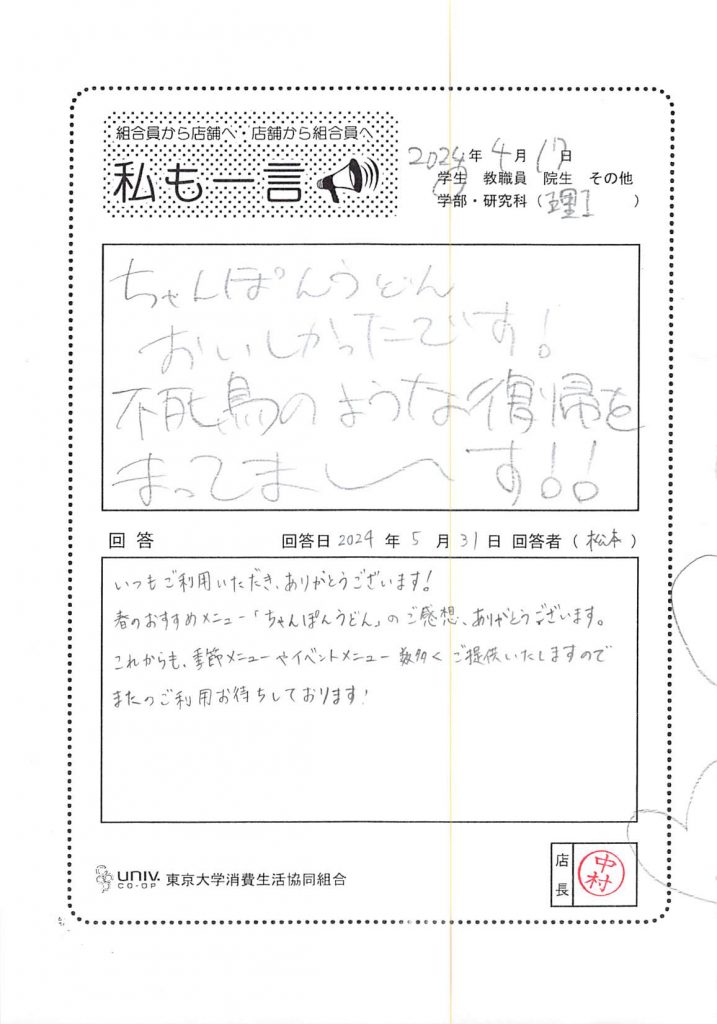 組合員から店舗へ・店舗から組合員へ
私も一言
2024年4月17日
学生 教職員 院生 その他
学部・研究科（理I）
ちゃんぽんうどん
おいしかったです!
不死鳥のような復帰を
まってまーす!!
回答 回答日 2024年5月31日 回答者（松本）
いつもご利用いただき、ありがとうございます!
春のおすすめメニュー「ちゃんぽんうどん」のご感想、ありがとうございます。
これからも、季節メニューやイベントメニュー数多くご提供いたしますので
またのご利用お待ちしております!
店長
中村
UNIV. CO-OP 東京大学消費生活協同組合